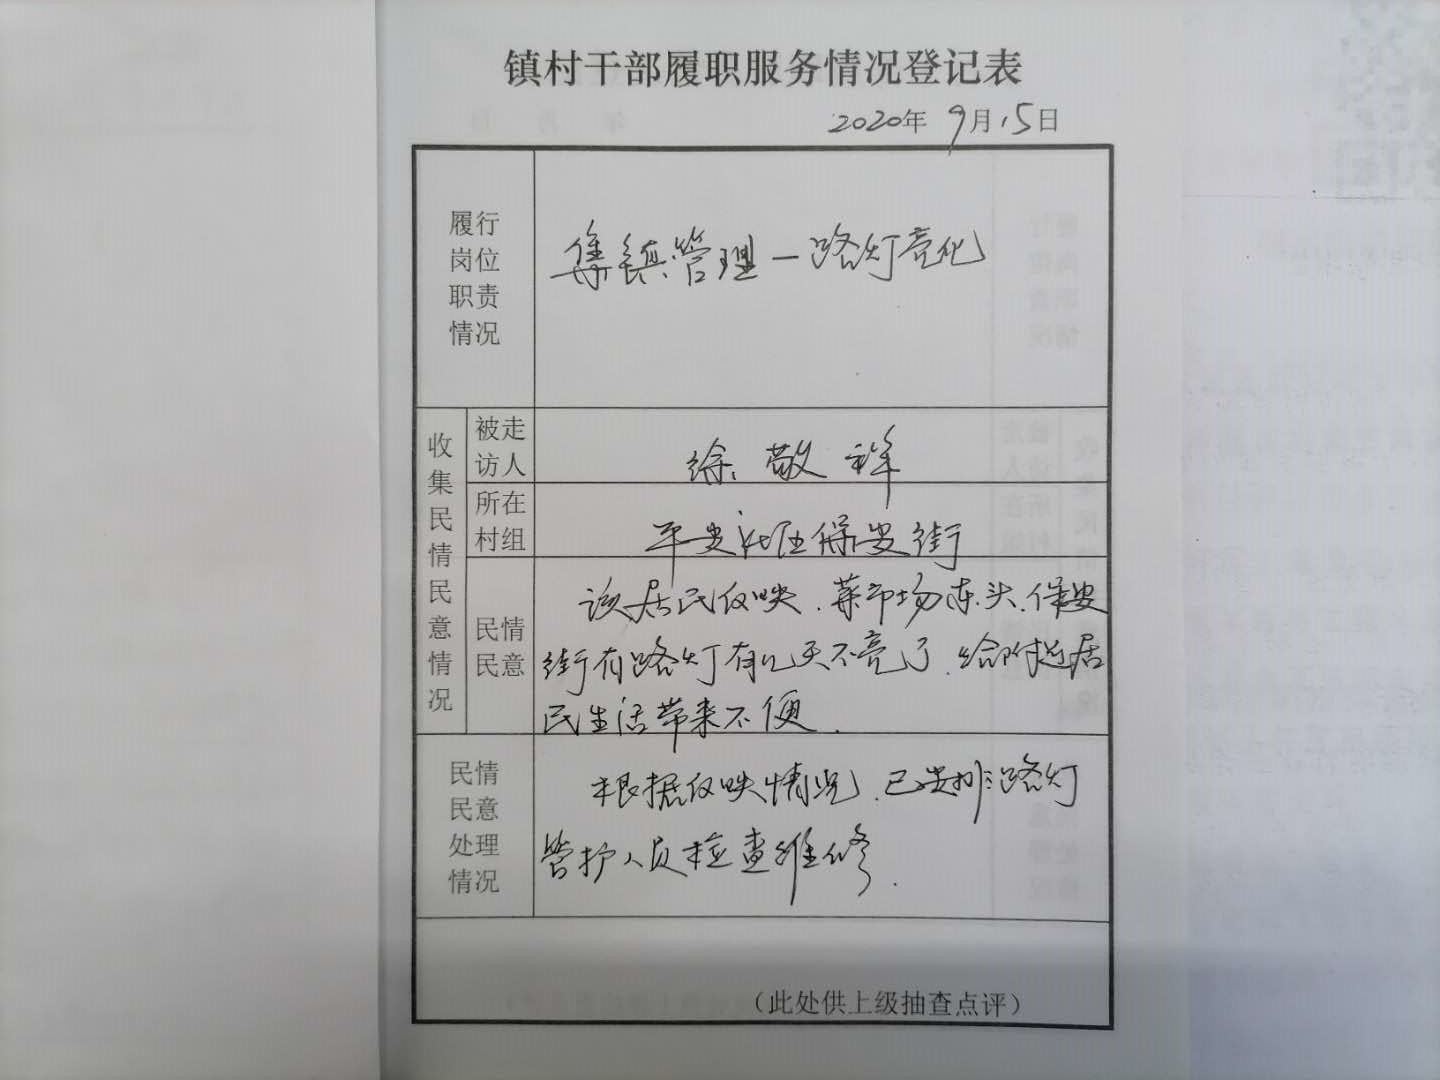 镇村干部履职服务情况登记表
2020年 9月15日
履行
岗位
职责
情况
集镇管理—路灯亮化
收集民情民意情况
被走
访人
徐敬祥
所在
村组
平安社区保安街
民情
民意
该居民反映.菜市场东头.保安
街有路灯有几天不亮了.给附近居
民生活带来不便.
民情
民意
处理
情况
根据反映情况.已安排路灯
管护人员检查维修.
（此处供上级抽查点评）